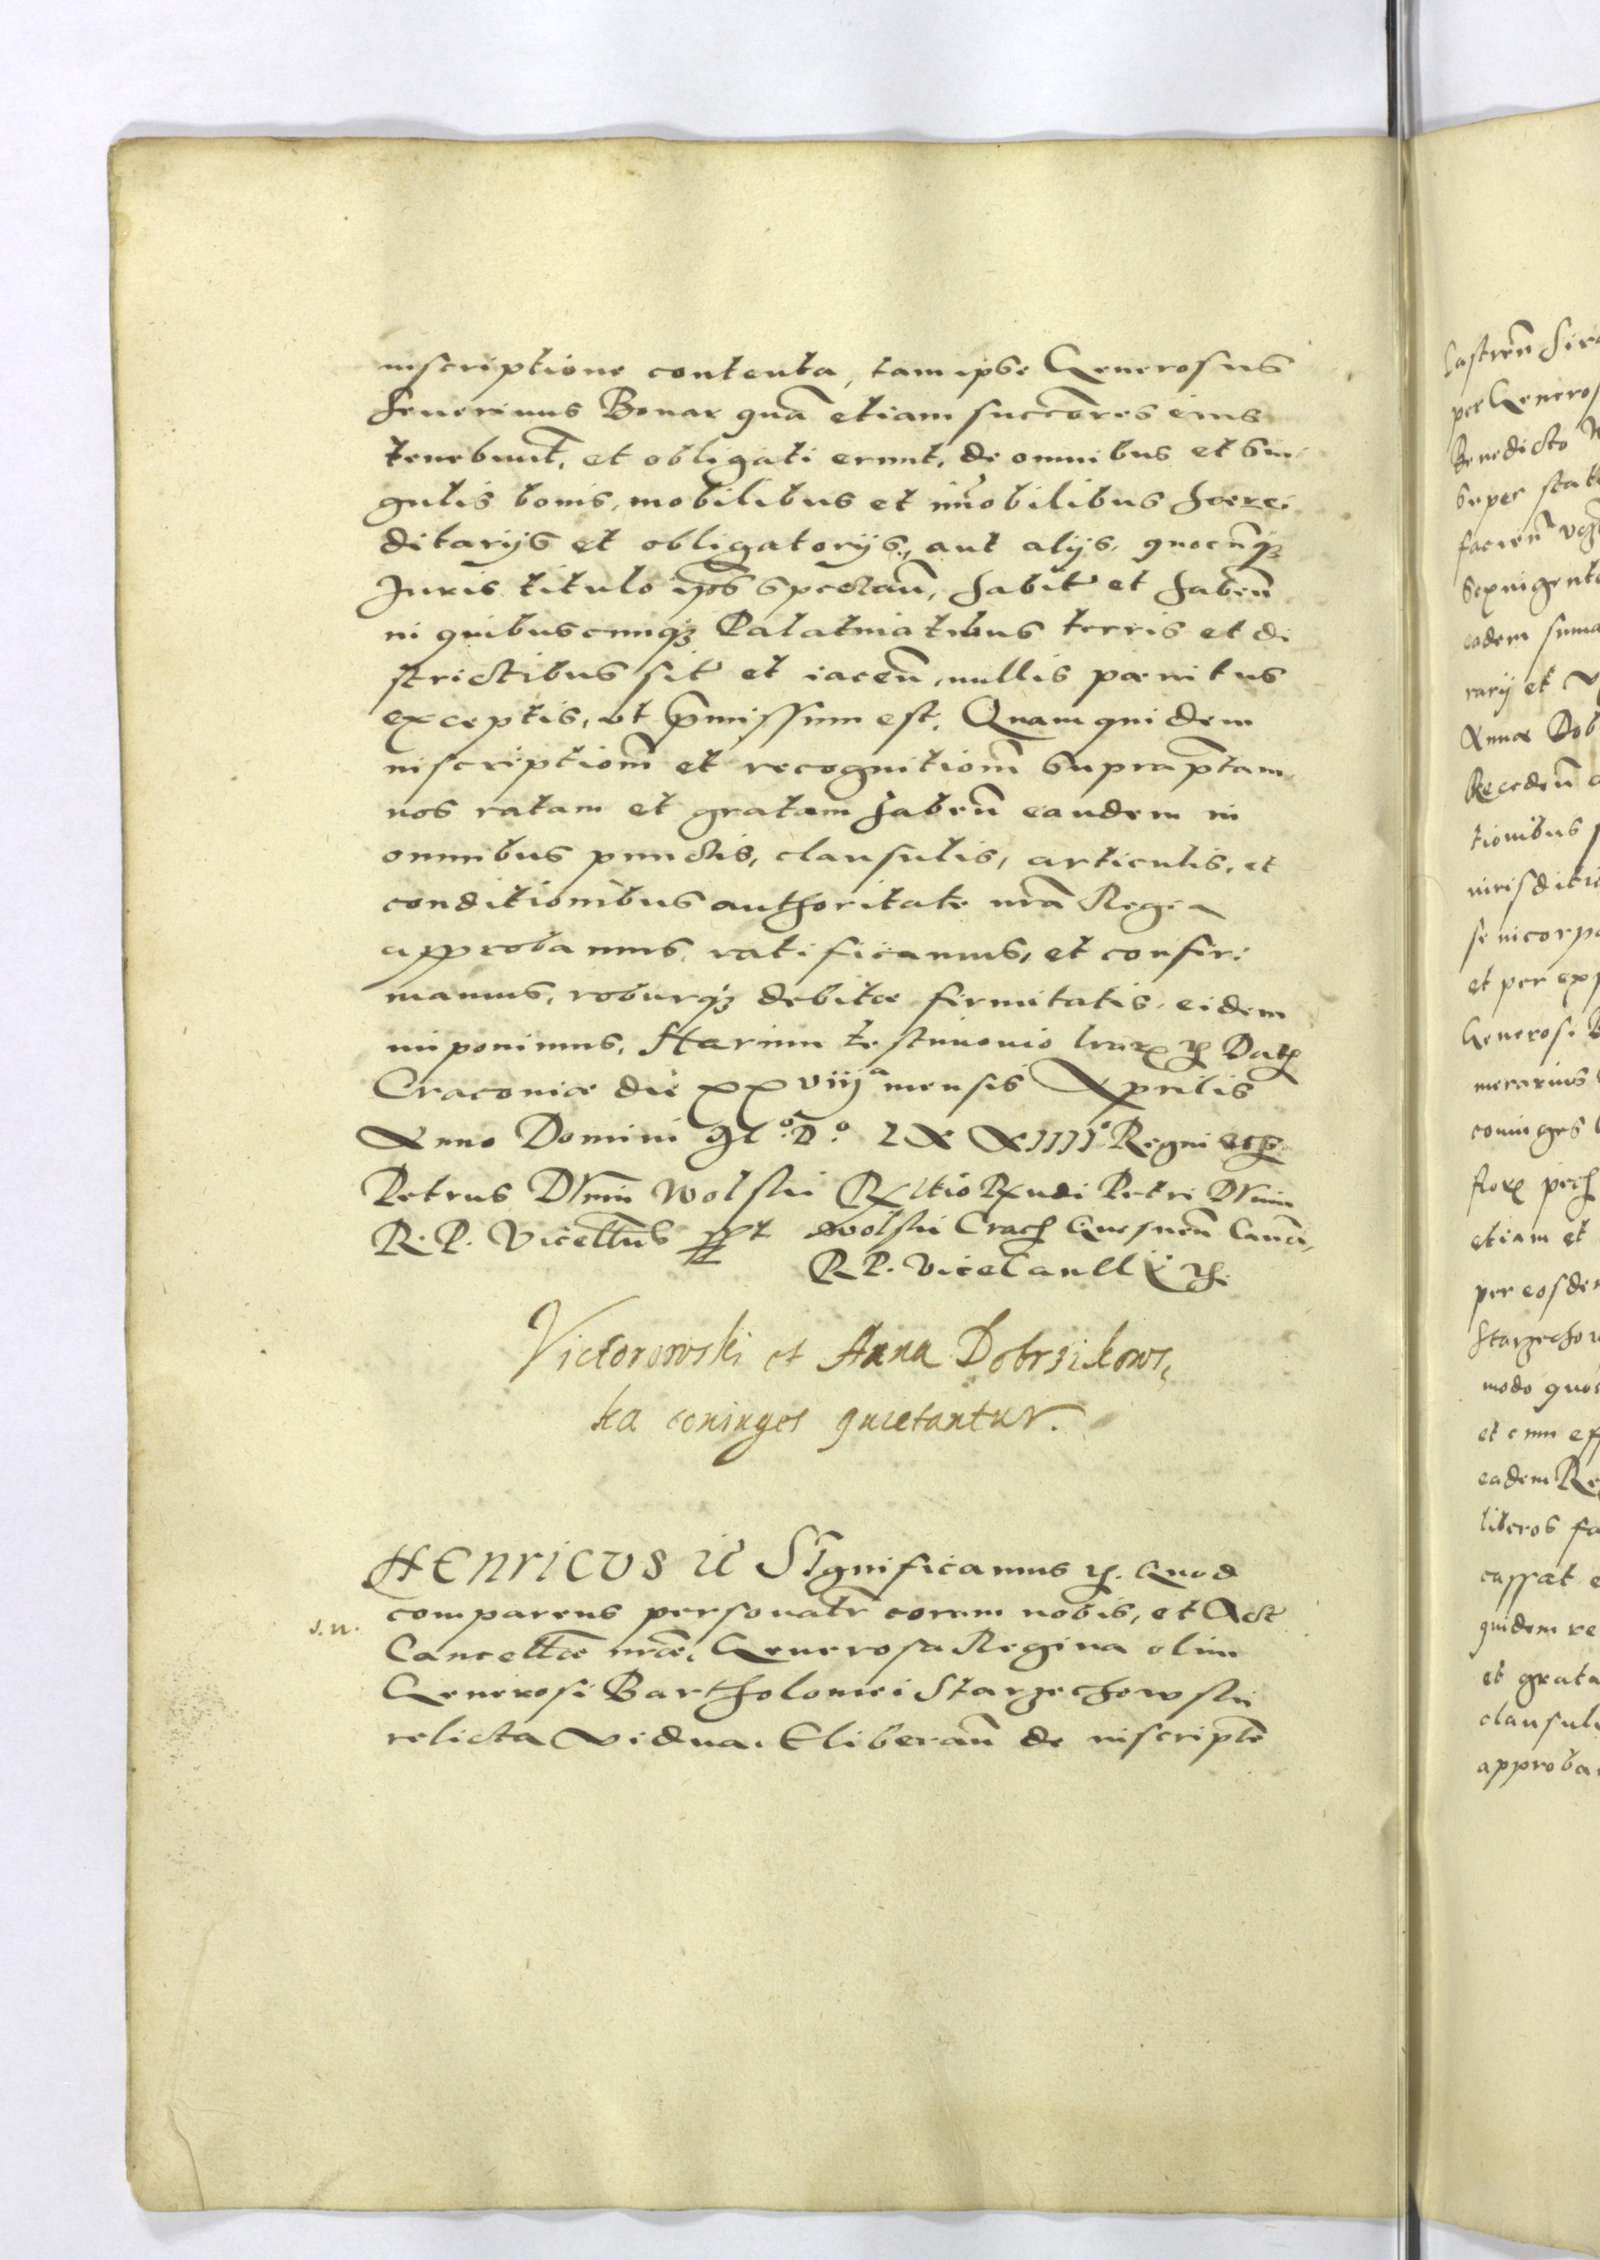 inscriptione contenta, tam ipse Generosus
Seuerinus Bonar quā etiam succōres eius
tenebunt̄, et obligati erunt, de omnibus et sin
gulis bonis, mobilibus et im̄obilibus hærei
ditarijs et obligatorijs, aut alijs, quocūq3
Juris titulo ip̄s spectan̄, habit̄ et haben̄
in quibuscunq3 Palatinatibus terris et di
strictibus sit̄ et iacen̄, nullis pænitus
exceptis, ut p̄missum est. Quam quidem
inscriptiom̄ et recognitiom̄ supraptam̄
nos ratam et gratam haben̄ eandem in
omnibus punctis, clausulis, articulis, et
conditionibus authoritate nr̄a Regea
approbamus, ratificamus, et confir:
mamus, roburq3 debitæ firmitatis eidem
imponimus, Harum testimonio lrarꝝ ꝛc Datꝭ
Cracoviæ die xxviijª mensis Aprilis
Anno Domini Mº.Dº. LXXIIIIº Regni etc
Petrus Dunin Wolski Rltio Rndi Petri Dunin
R. P. Vicecll̄us sst Wolski Crac Gnesnen̄ Canci
R P. Vicecancll ꝛc.
Victorowski et Anna Dobrzikows,
ka coniuges quietantur.
Henricus ic Significamus ꝛc. Quod
comparens personatr̄ coram nobis, et Act
s.n.
Cancelltæ nr̄æ, Generosa Regina olim
Generosi Bartholomei Starzechowski
relicta Vidua. Eliberan̄ de inscriptē
Castren̄ Sira
per Generos
Benedicto
super stat
facien̄
sexingent
eadem suma
rarij et
Annæ Dob
Receden̄
tionibus
iurisditi
se incorpo
et per exp
Generosi B
merarius
coniuges
florꝝ pecc
etiam et
per eosdem
Starzechow
modo quo
et cum eff
eadem Re
liberos fa
cassat e
quidem re
et grata
clausuli
approba